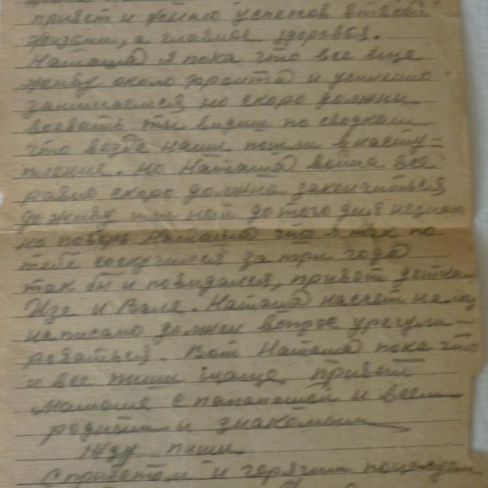 привет и желаю успехов в твоей
жизни, а главное здоровья.
Наташа я пока что все еще
живу около фронта и усиленно
занимаемся, но скоро должны
воевать ты видиш по сводкам
что возде наши пошли в насту-
пление. но Наташа война все
равно скоро должна закончиться
доживу или ней до того дня незнаю
но поверь Наташа что я так по
тебе соскучился за три года
так бы и повидался, привет деткам
Изе и Вале. Наташа насчет налог
написано должен вопрос урегули-
роваться. Вот Наташа пока что
и все пиши чаще, привет
мамаше с папашой и всем
родным и знакомым
Жду пиши
С приветом и горячим поцелуем